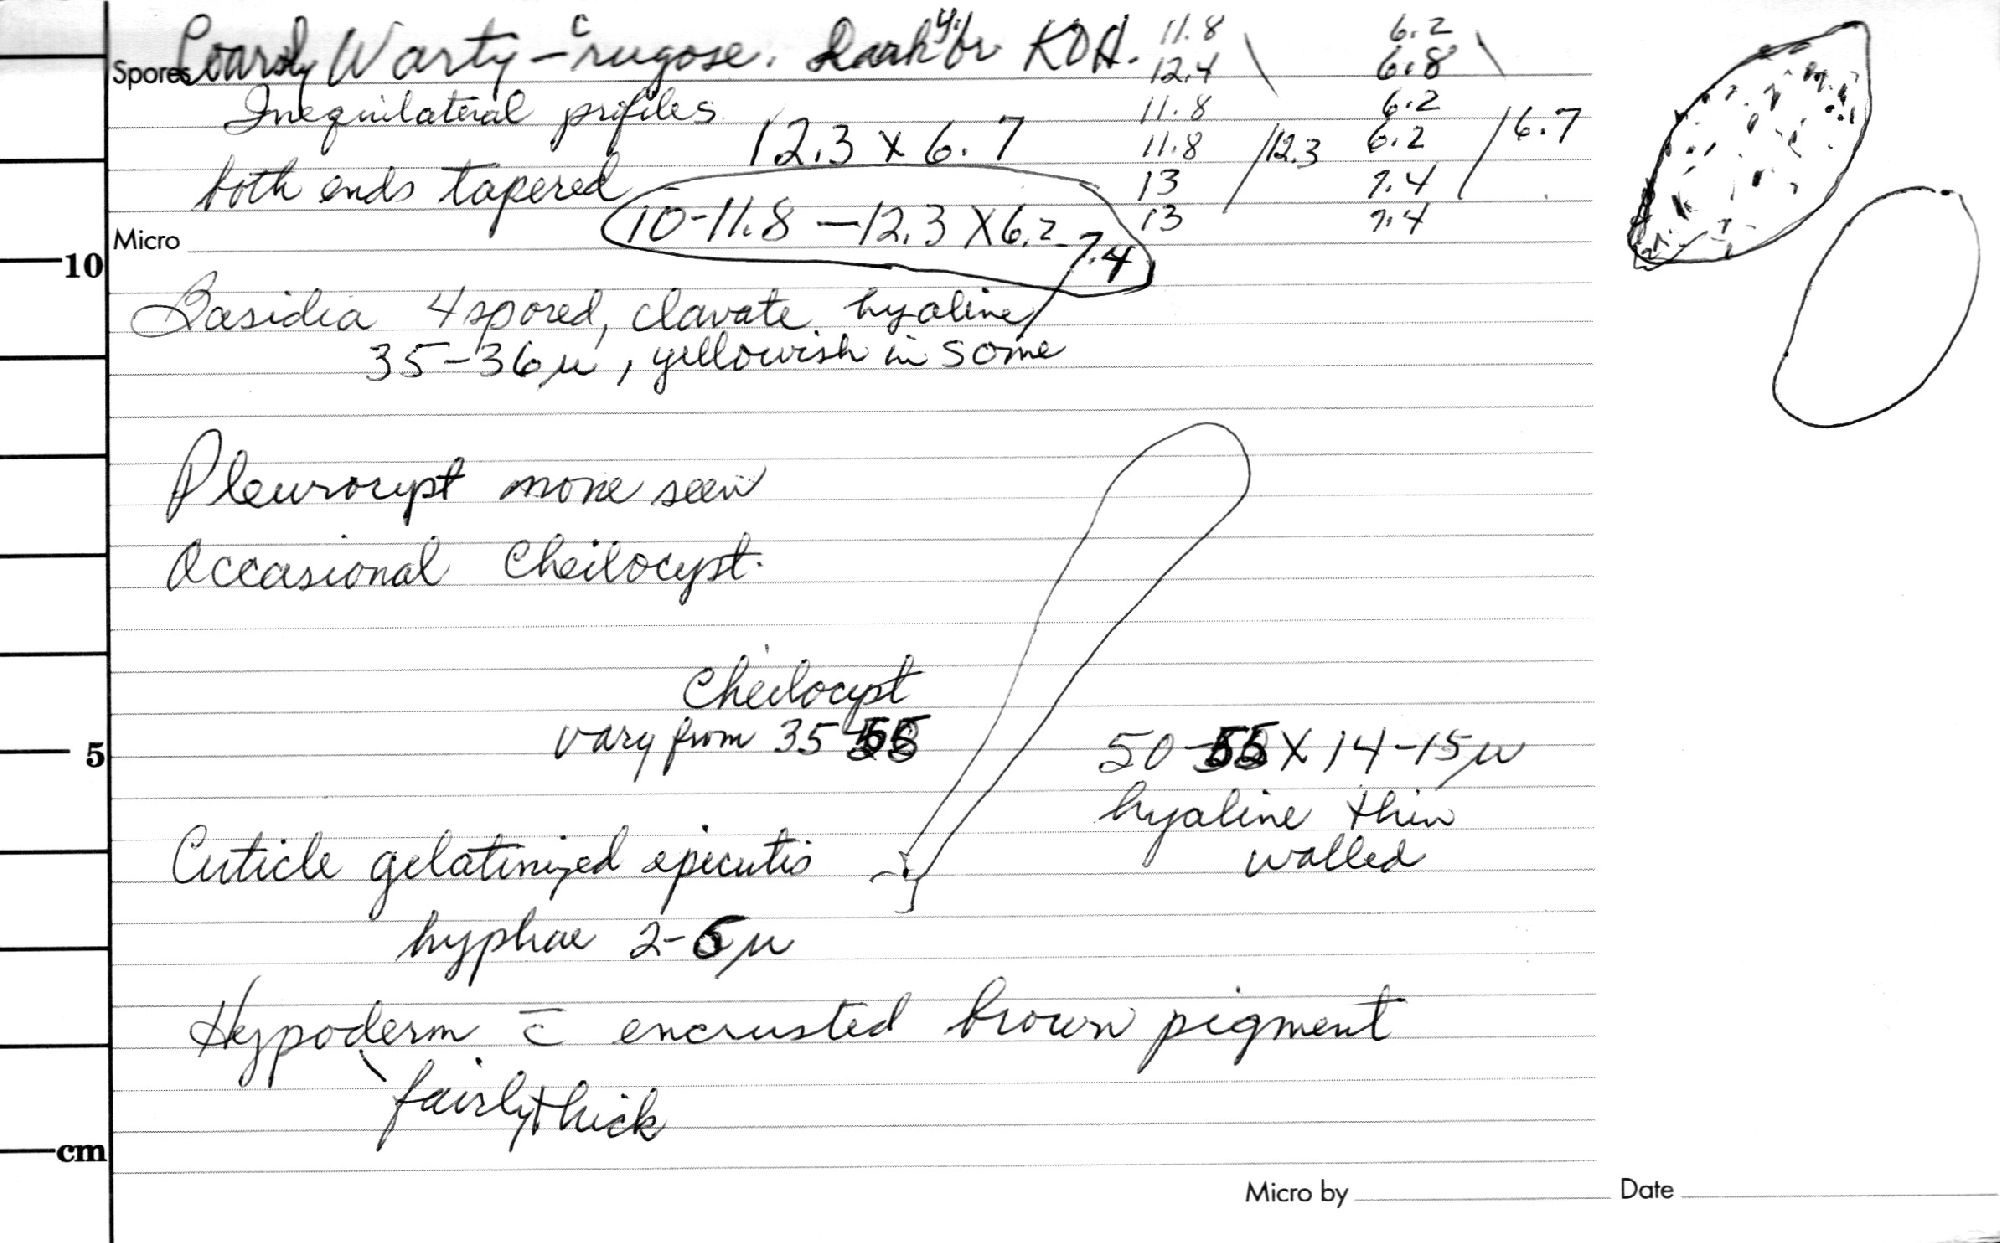 Spores Coarsly Warty – rugose. Dark yl br KOH.
11.8 6.2
12.4 6.8
Inequilateral profiles 11.8 6.2
12.3 x 6.7 11.8 /12.3 6.2 /6.7
both ends tapered 13 7.4
10-11.8 – 12.3 X 6.2 - 7.4 13 7.4
Micro
10
Basidia 4 spored, clavate, hyaline
35-36µ, yellowish in some
Pleurocyst none seen
Occasional Cheilocyst.
Cheilocyst
vary from 35-55
5
50-55 X 14-15µ
hyaline thin
walled
Cuticle gelatinized epicutis
hyphae 2-6µ
Hypoderm c̄ encrusted brown pigment
fairly thick
cm
Micro by Date